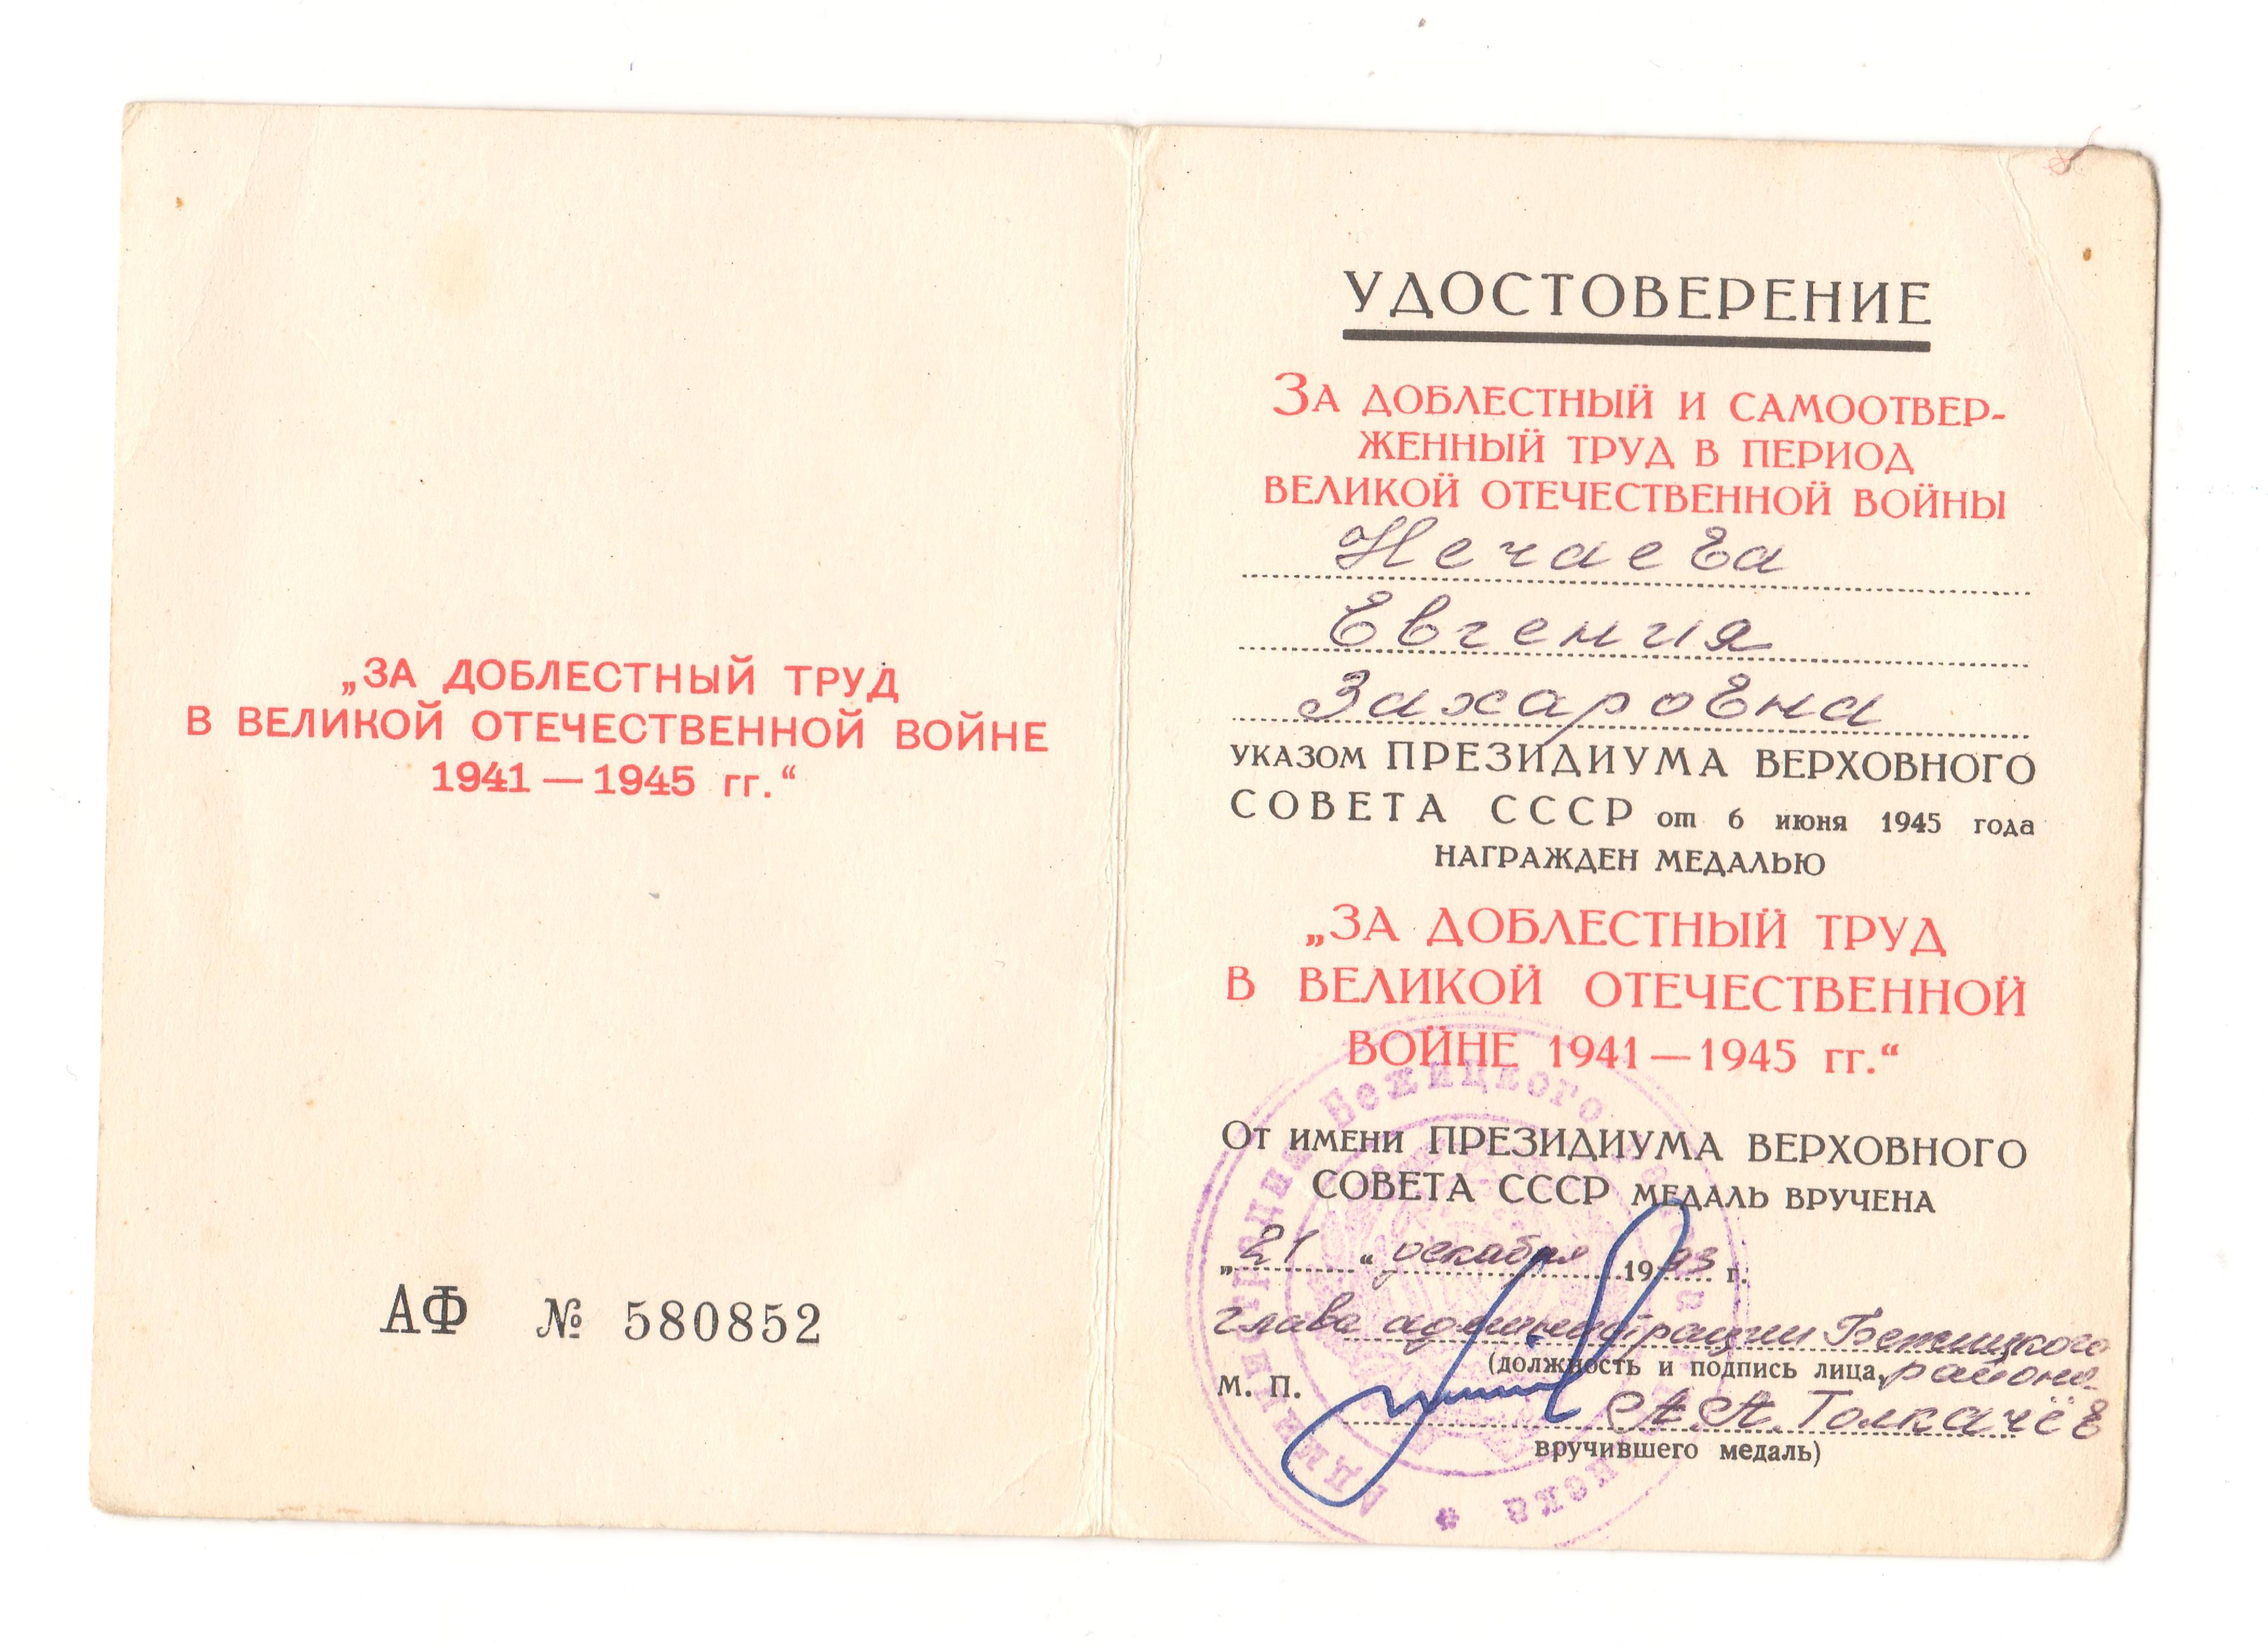 „ЗА ДОБЛЕСТНЫЙ ТРУД
В ВЕЛИКОЙ ОТЕЧЕСТВЕННОЙ ВОЙНЕ
1941—1945 гг.“
АФ № 580852
УДОСТОВЕРЕНИЕ
ЗА ДОБЛЕСТНЫЙ И САМООТВЕР-
ЖЕННЫЙ ТРУД В ПЕРИОД
ВЕЛИКОЙ ОТЕЧЕСТВЕННОЙ ВОЙНЫ
Нечаева
Евгения
Захаровна
УКАЗОМ ПРЕЗИДИУМА ВЕРХОВНОГО
СОВЕТА СССР от 6 июня 1945 года
НАГРАЖДЕН МЕДАЛЬЮ
„ЗА ДОБЛЕСТНЫЙ ТРУД
В ВЕЛИКОЙ ОТЕЧЕСТВЕННОЙ
ВОЙНЕ 1941—1945 гг.“
ОТ ИМЕНИ ПРЕЗИДИУМА ВЕРХОВНОГО
СОВЕТА СССР МЕДАЛЬ ВРУЧЕНА
„21“ декабря 1993 г.
глава администрации Бежицкого
(должность и подпись лица, района
М. П.
А.А. Толкачёв
вручившего медаль)
Бежицкого